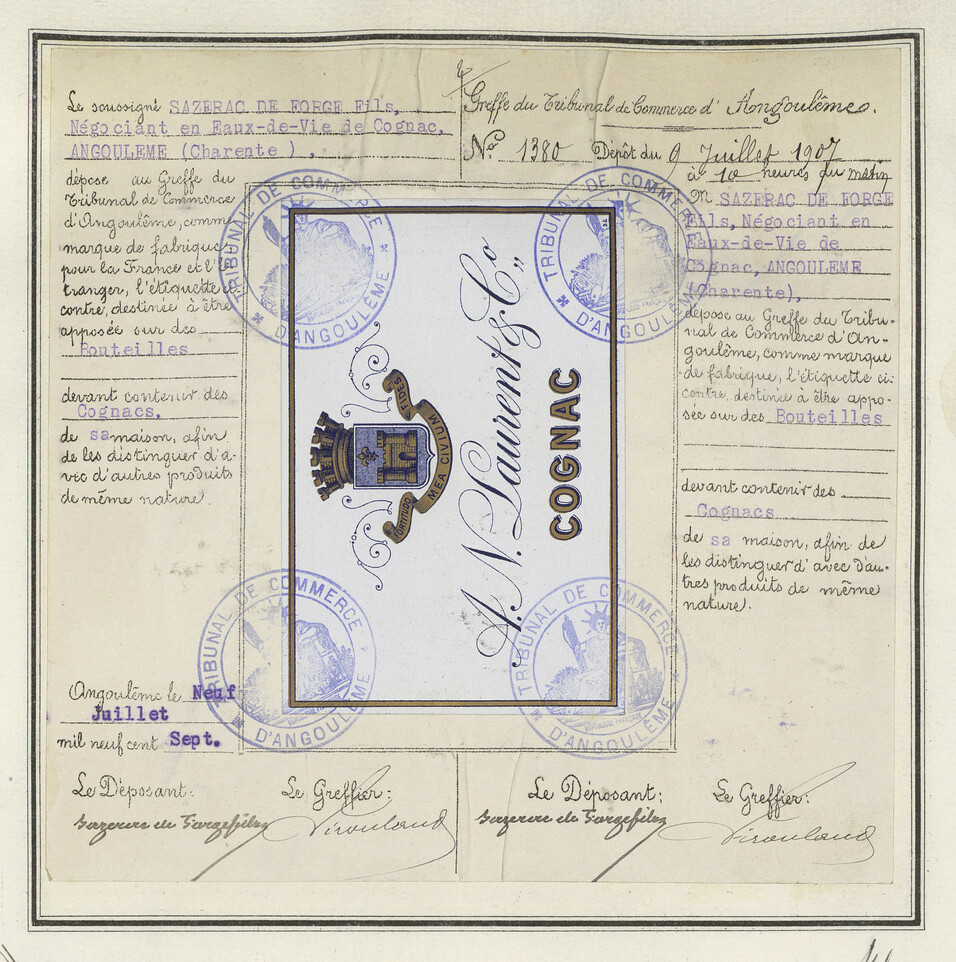 Le soussigné SAZERAC DE FORGE Fils,
Négociant en Eaux-de-Vie de Cognac,
ANGOULEME (Charente ),
dépose au Greffe du
Tribunal de Commerce
d'Angoulême, comme
marque de fabrique
pour la France et l'É
tranger, l'étiquette ci
contre, destinée à être
apposée sur des
Bouteilles
devant contenir des
Cognacs,
de sa maison, afin
de les distinguer d'a-
vec d'autres produits
de même nature.
Angoulême le Neuf
Juillet
mil neuf cent Sept.
Le Déposant:
Sazerac de Forge fils
Le Greffier:
Greffe du Tribunal de Commerce d'Angoulême.
No 1380 Dépôt du 9 Juillet 1907
à 10 heures du matin
M SAZERAC DE FORGE
Fils, Négociant en
Eaux-de-Vie de
Cognac, ANGOULEME
(Charente),
dépose au Greffe du Tribu-
nal de Commerce d'An-
goulême, comme marque
de fabrique, l'étiquette ci-
contre, destinée à être appo-
sée sur des Bouteilles
devant contenir des
Cognacs
de sa maison, afin de
les distinguer d'avec d'au-
tres produits de même
nature.
Le Déposant:
Sazerac de Forge fils
Le Greffier:
A. N. Laurent & Co
COGNAC
FORTITUDO MEA CIVIUM FIDES
TRIBUNAL DE COMMERCE
D'ANGOULÊME
TRIBUNAL DE COMMERCE
D'ANGOULÊME
TRIBUNAL DE COMMERCE
D'ANGOULÊME
TRIBUNAL DE COMMERCE
D'ANGOULÊME